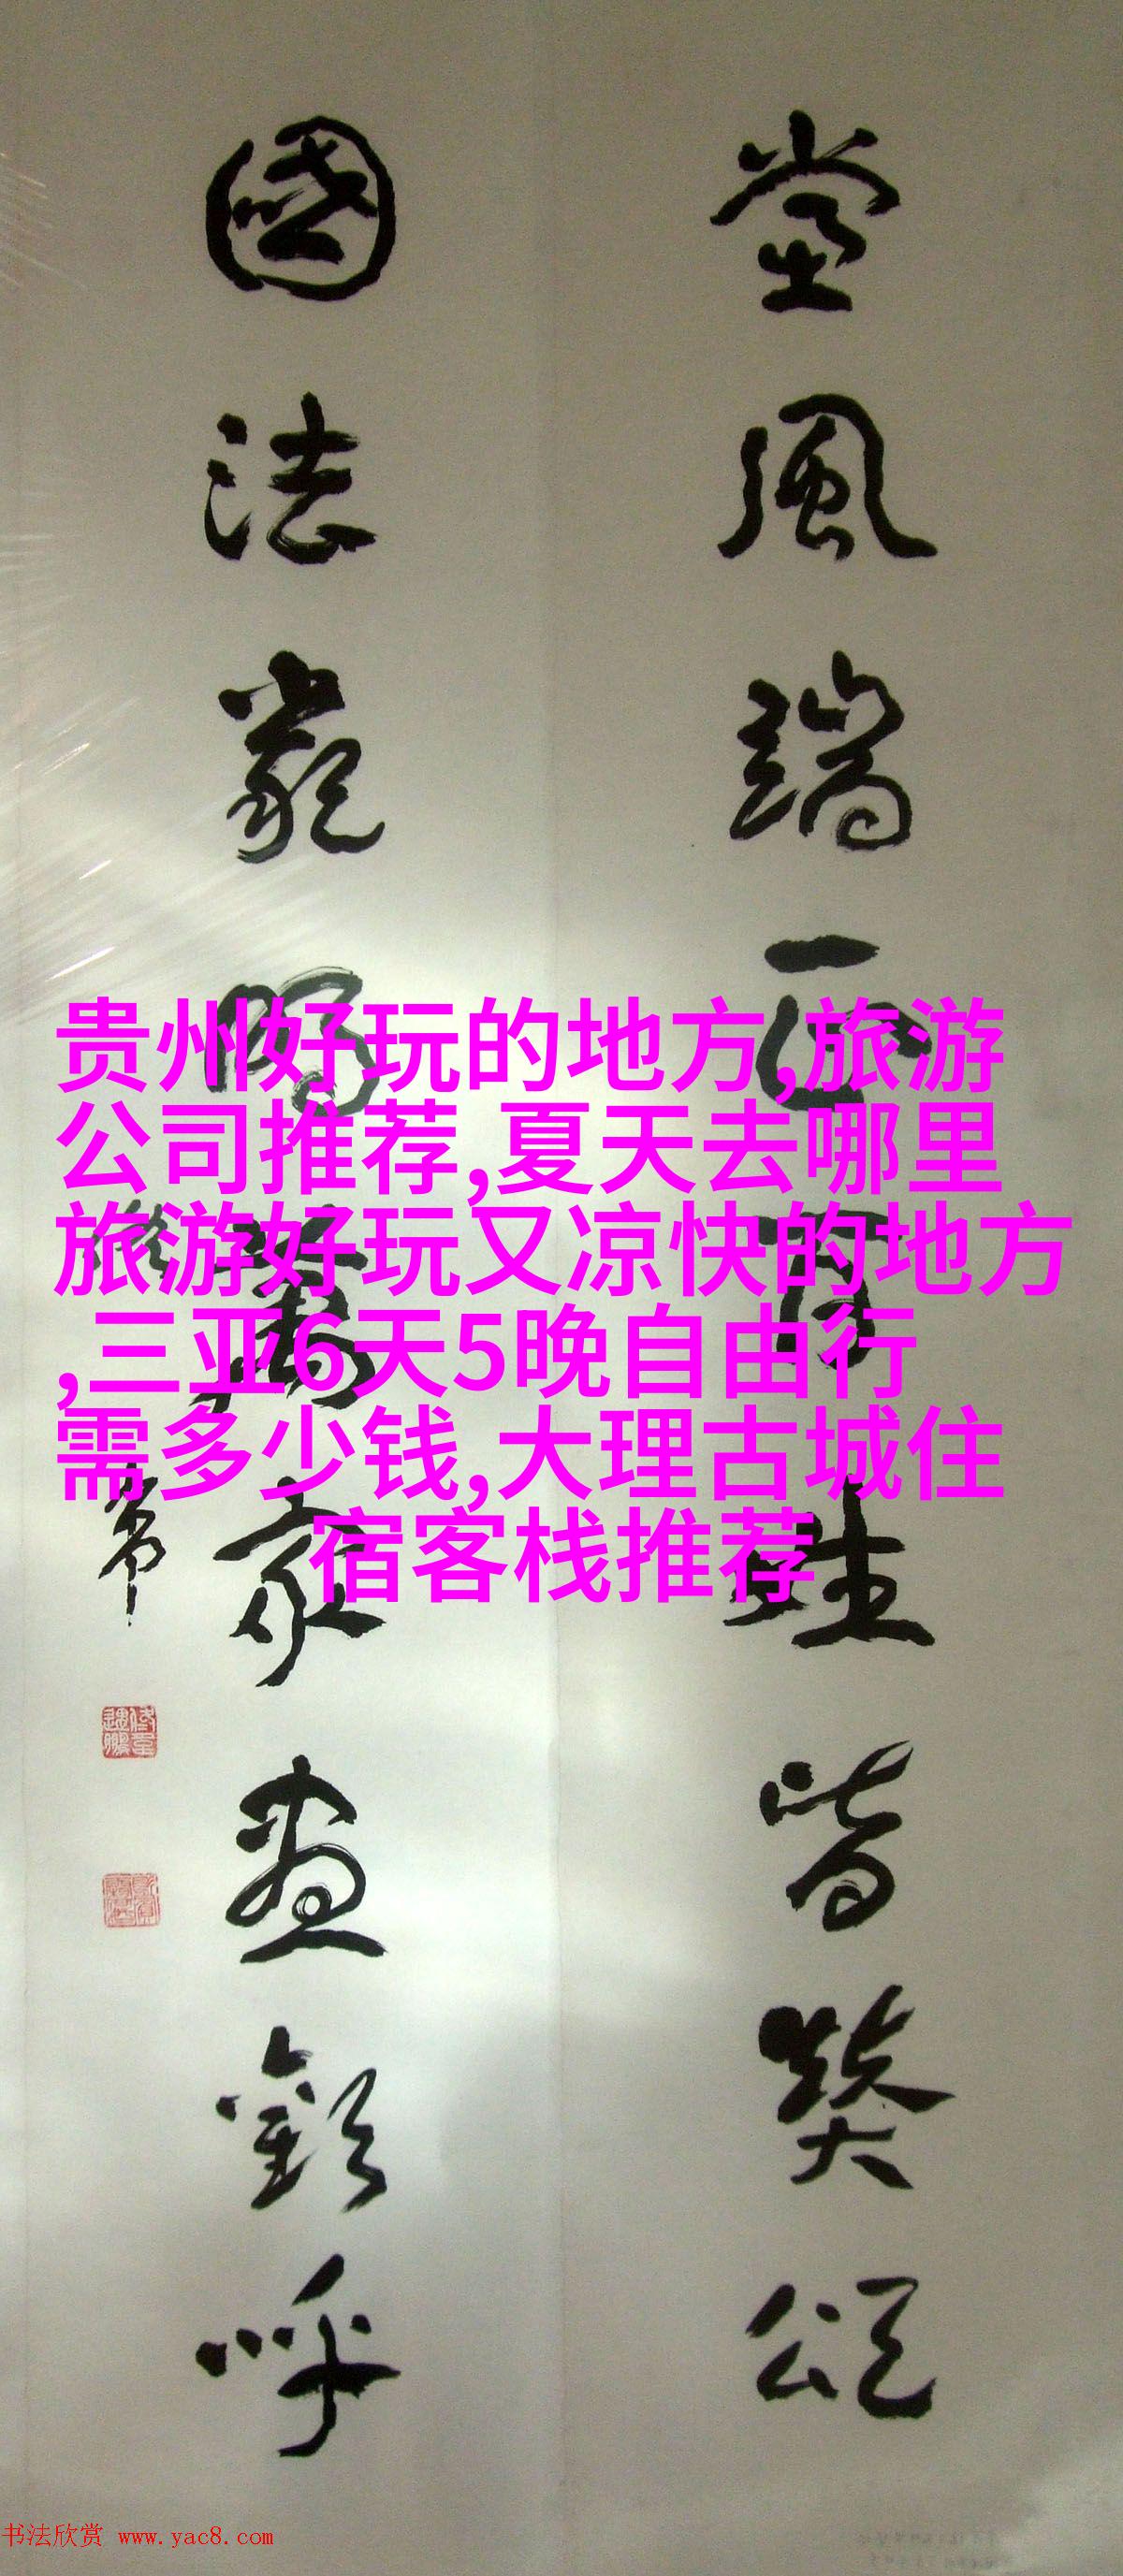 党風端正百姓皆奬頌
國法嚴明萬家盡歡呼
贵州好玩的地方,旅游
公司推荐,夏天去哪里
旅游好玩又凉快的地方
,三亚6天5晚自由行
需多少钱,大理古城住
宿客栈推荐
书法欣赏 www.yac8.com